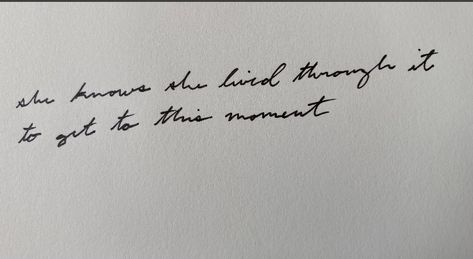 she knows she lived through it
to get to this moment